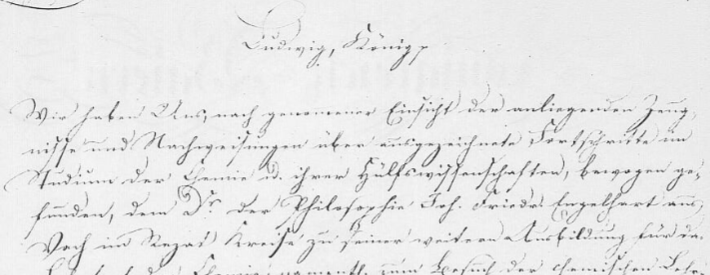 Ludwig, König,
Wir haben Uns, nach genommener Einsicht der anliegenden Zeug-
nisse und Nachweisungen über ausgezeichnete Fortschritte im
Studium der Chemie u. ihrer Hülfswissenschaften, bewogen ge-
funden, dem Dr. der Philosophie Joh. Friedr. Engelhart aus
Roth im Rezat Kreise zu seiner weitern Ausbildung für das
der Chemie, zum Besuch der chemischen